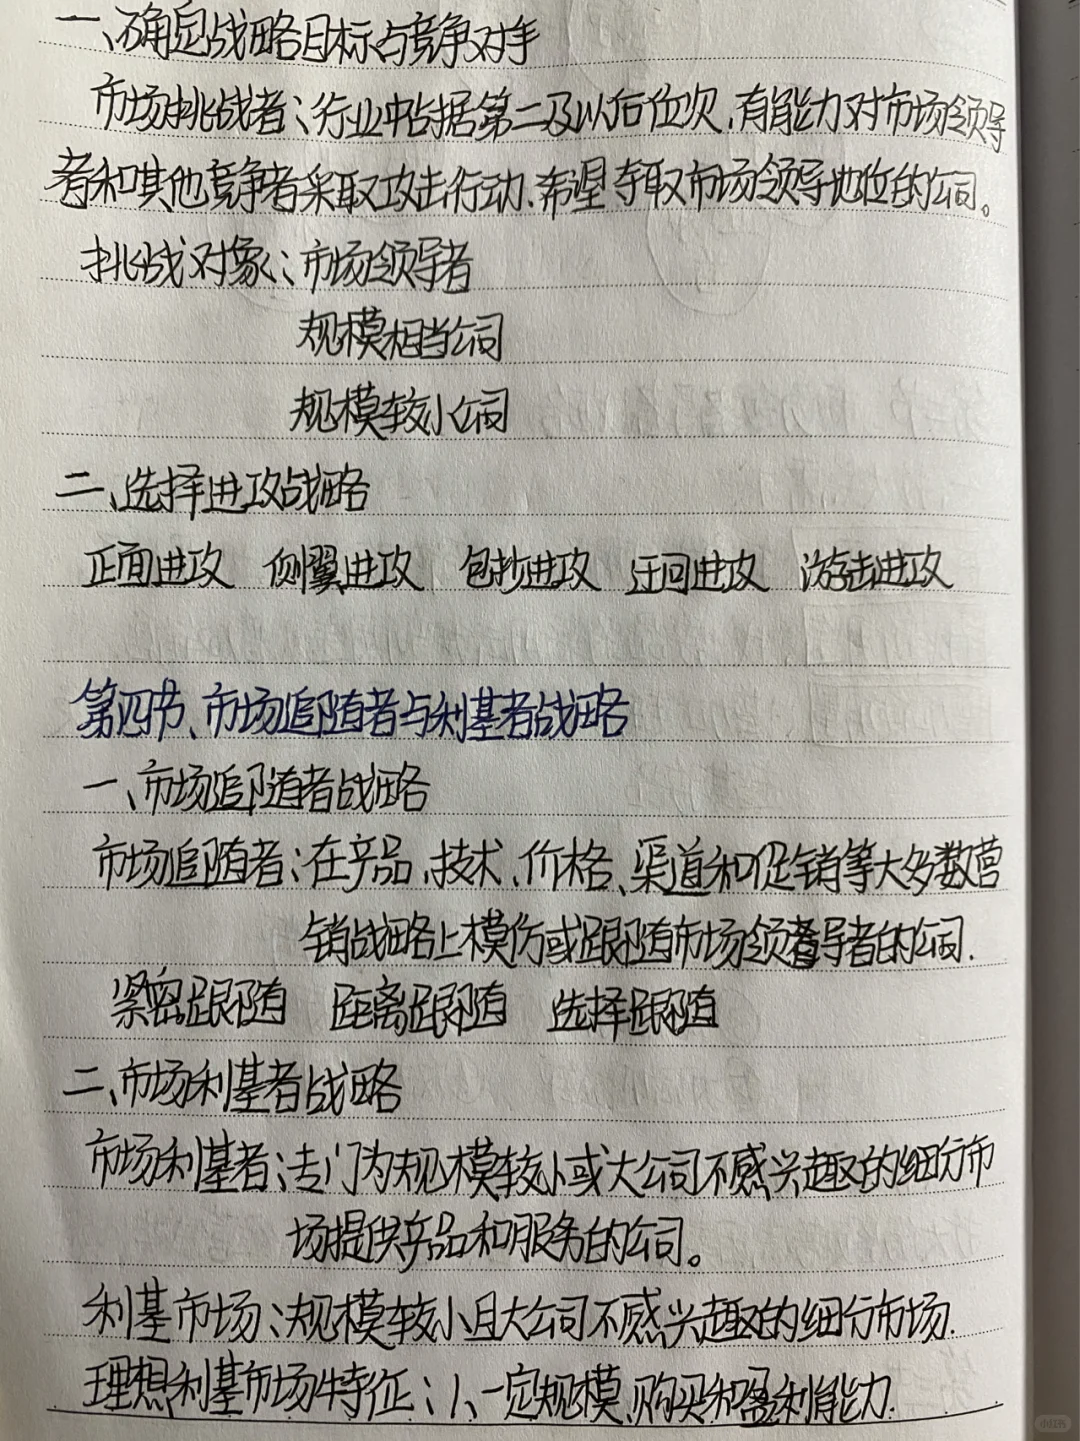 一、确定战略目标与竞争对手
市场挑战者：行业中占据第二及以后位次，有能力对市场领导
者和其他竞争者采取攻击行动，希望夺取市场领导地位的公司。
挑战对象：市场领导者
规模相当公司
规模较小公司
二、选择进攻战略
正面进攻 侧翼进攻 包抄进攻 迂回进攻 游击进攻
第四节、市场追随者与利基者战略
一、市场追随者战略
市场追随者：在产品、技术、价格、渠道和促销等大多数营
销战略上模仿或跟随市场领导者的公司.
紧密跟随 距离跟随 选择跟随
二、市场利基者战略
市场利基者：专门为规模较小或大公司不感兴趣的细分市
场提供产品和服务的公司。
利基市场：规模较小且大公司不感兴趣的细分市场.
理想利基市场特征：1、一定规模、购买和盈利能力.
小红书